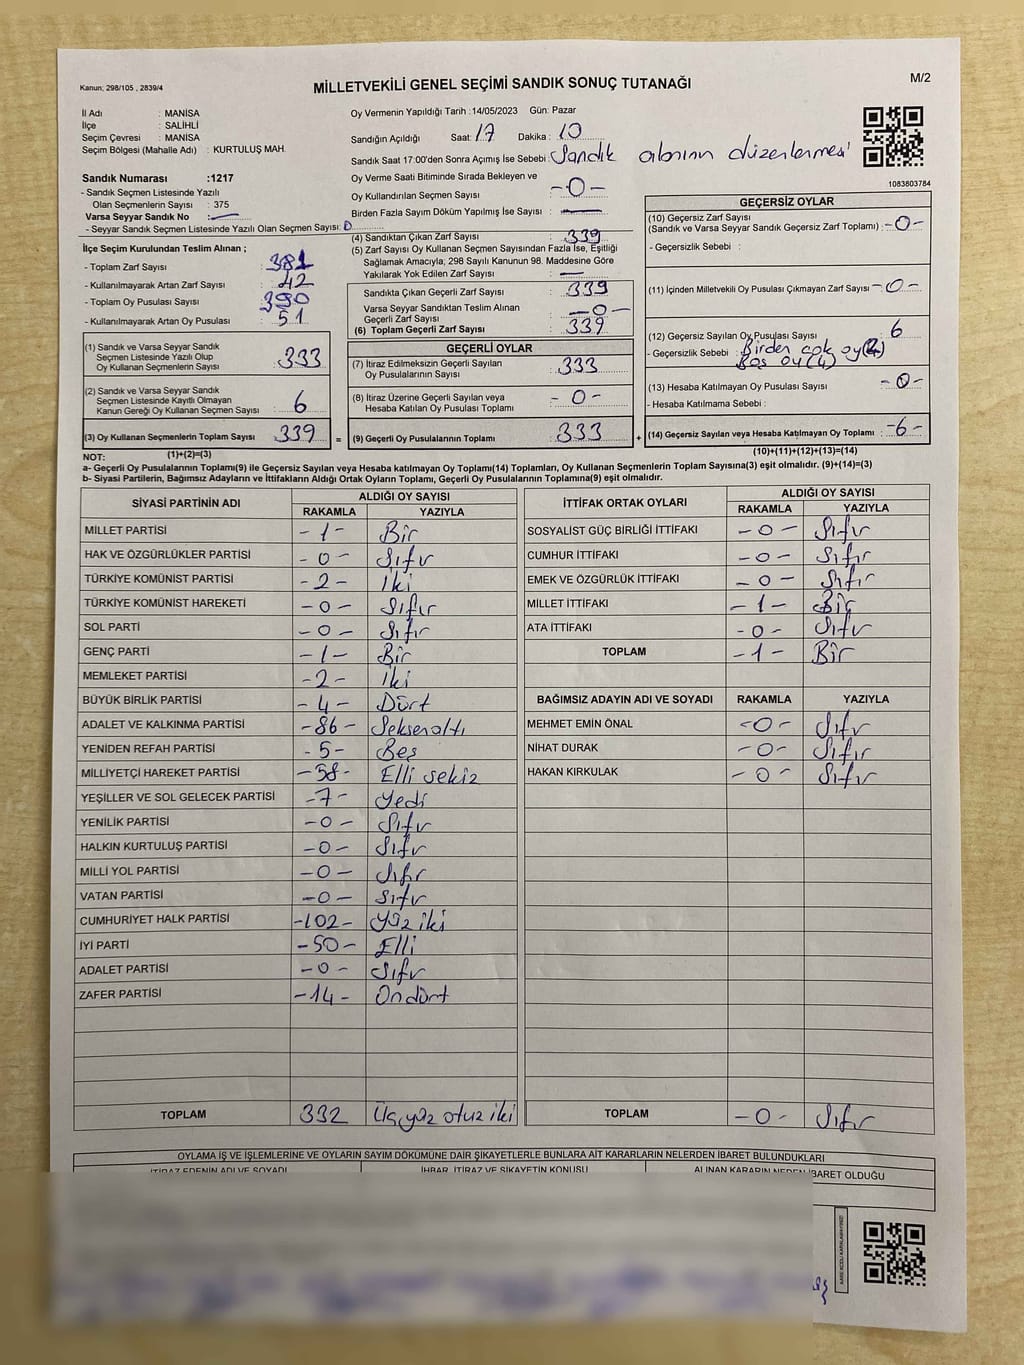 Kanun; 298/105 , 2839/4
MİLLETVEKİLİ GENEL SEÇİMİ SANDIK SONUÇ TUTANAĞI
M/2
İl Adı : MANİSA
İlçe : SALİHLİ
Seçim Çevresi : MANİSA
Seçim Bölgesi (Mahalle Adı) : KURTULUŞ MAH.
Sandık Numarası :1217
- Sandık Seçmen Listesinde Yazılı
Olan Seçmenlerin Sayısı : 375
Varsa Seyyar Sandık No :
- Seyyar Sandık Seçmen Listesinde Yazılı Olan Seçmen Sayısı: 0
Oy Vermenin Yapıldığı Tarih :14/05/2023 Gün: Pazar
Sandığın Açıldığı Saat: 17 Dakika : 10
Sandık Saat 17:00'den Sonra Açımış İse Sebebi : Sandık alanının düzenlenmesi
Oy Verme Saati Bitiminde Sırada Bekleyen ve
Oy Kullandırılan Seçmen Sayısı -0-
Birden Fazla Sayım Döküm Yapılmış İse Sayısı :
1083803784
İlçe Seçim Kurulundan Teslim Alınan ;
- Toplam Zarf Sayısı : 381
- Kullanılmayarak Artan Zarf Sayısı : 42
- Toplam Oy Pusulası Sayısı : 390
- Kullanılmayarak Artan Oy Pusulası : 51
(1) Sandık ve Varsa Seyyar Sandık
Seçmen Listesinde Yazılı Olup
Oy Kullanan Seçmenlerin Sayısı : 333
(2) Sandık ve Varsa Seyyar Sandık
Seçmen Listesinde Kayıtlı Olmayan
Kanun Gereği Oy Kullanan Seçmen Sayısı : 6
(3) Oy Kullanan Seçmenlerin Toplam Sayısı : 339 =
(1)+(2)=(3)
(4) Sandıktan Çıkan Zarf Sayısı : 339
(5) Zarf Sayısı Oy Kullanan Seçmen Sayısından Fazla İse, Eşitliği
Sağlamak Amacıyla; 298 Sayılı Kanunun 98. Maddesine Göre
Yakılarak Yok Edilen Zarf Sayısı :
Sandıkta Çıkan Geçerli Zarf Sayısı : 339
Varsa Seyyar Sandıktan Teslim Alınan
Geçerli Zarf Sayısı : -0-
(6) Toplam Geçerli Zarf Sayısı : 339
GEÇERLİ OYLAR
(7) İtiraz Edilmeksizin Geçerli Sayılan
Oy Pusulalarının Sayısı : 333
(8) İtiraz Üzerine Geçerli Sayılan veya
Hesaba Katılan Oy Pusulası Toplamı : - 0 -
(9) Geçerli Oy Pusulalarının Toplamı : 333 +
GEÇERSİZ OYLAR
(10) Geçersiz Zarf Sayısı
(Sandık ve Varsa Seyyar Sandık Geçersiz Zarf Toplamı) : -0-
- Geçersizlik Sebebi :
(11) İçinden Milletvekili Oy Pusulası Çıkmayan Zarf Sayısı -0-
(12) Geçersiz Sayılan Oy Pusulası Sayısı : 6
- Geçersizlik Sebebi : Birden çok oy(2)
Boş oy (4)
(13) Hesaba Katılmayan Oy Pusulası Sayısı : -0-
- Hesaba Katılmama Sebebi :
(14) Geçersiz Sayılan veya Hesaba Katılmayan Oy Toplamı : -6-
(10)+(11)+(12)+(13)=(14)
NOT:
a- Geçerli Oy Pusulalarının Toplamı(9) ile Geçersiz Sayılan veya Hesaba katılmayan Oy Toplamı(14) Toplamları, Oy Kullanan Seçmenlerin Toplam Sayısına(3) eşit olmalıdır. (9)+(14)=(3)
b- Siyasi Partilerin, Bağımsız Adayların ve İttifakların Aldığı Ortak Oyların Toplamı, Geçerli Oy Pusulalarının Toplamına(9) eşit olmalıdır.
SİYASİ PARTİNİN ADI ALDIĞI OY SAYISI
RAKAMLA YAZIYLA
MİLLET PARTİSİ - 1 - Bir
HAK VE ÖZGÜRLÜKLER PARTİSİ - 0 - Sıfır
TÜRKİYE KOMÜNİST PARTİSİ - 2 - İki
TÜRKİYE KOMÜNİST HAREKETİ - 0 - Sıfır
SOL PARTİ - 0 - Sıfır
GENÇ PARTİ - 1 - Bir
MEMLEKET PARTİSİ - 2 - İki
BÜYÜK BİRLİK PARTİSİ - 4 - Dört
ADALET VE KALKINMA PARTİSİ - 86 - Seksenaltı
YENİDEN REFAH PARTİSİ - 5 - Beş
MİLLİYETÇİ HAREKET PARTİSİ - 58 - Elli sekiz
YEŞİLLER VE SOL GELECEK PARTİSİ - 7 - Yedi
YENİLİK PARTİSİ - 0 - Sıfır
HALKIN KURTULUŞ PARTİSİ - 0 - Sıfır
MİLLİ YOL PARTİSİ - 0 - Sıfır
VATAN PARTİSİ - 0 - Sıfır
CUMHURİYET HALK PARTİSİ - 102 - Yüz iki
İYİ PARTİ - 50 - Elli
ADALET PARTİSİ - 0 - Sıfır
ZAFER PARTİSİ - 14 - Ondört
TOPLAM 332 Üçyüz otuz iki
İTTİFAK ORTAK OYLARI ALDIĞI OY SAYISI
RAKAMLA YAZIYLA
SOSYALİST GÜÇ BİRLİĞİ İTTİFAKI - 0 - Sıfır
CUMHUR İTTİFAKI - 0 - Sıfır
EMEK VE ÖZGÜRLÜK İTTİFAKI - 0 - Sıfır
MİLLET İTTİFAKI - 1 - Bir
ATA İTTİFAKI - 0 - Sıfır
TOPLAM - 1 - Bir
BAĞIMSIZ ADAYIN ADI VE SOYADI RAKAMLA YAZIYLA
MEHMET EMİN ÖNAL - 0 - Sıfır
NİHAT DURAK - 0 - Sıfır
HAKAN KIRKULAK - 0 - Sıfır
TOPLAM - 0 - Sıfır
OYLAMA İŞ VE İŞLEMLERİNE VE OYLARIN SAYIM DÖKÜMÜNE DAİR ŞİKAYETLERLE BUNLARA AİT KARARLARIN NELERDEN İBARET BULUNDUKLARI
İTİRAZ EDENİN ADI VE SOYADI İHBAR, İTİRAZ VE ŞİKAYETİN KONUSU ALINAN KARARIN NEDEN İBARET OLDUĞU